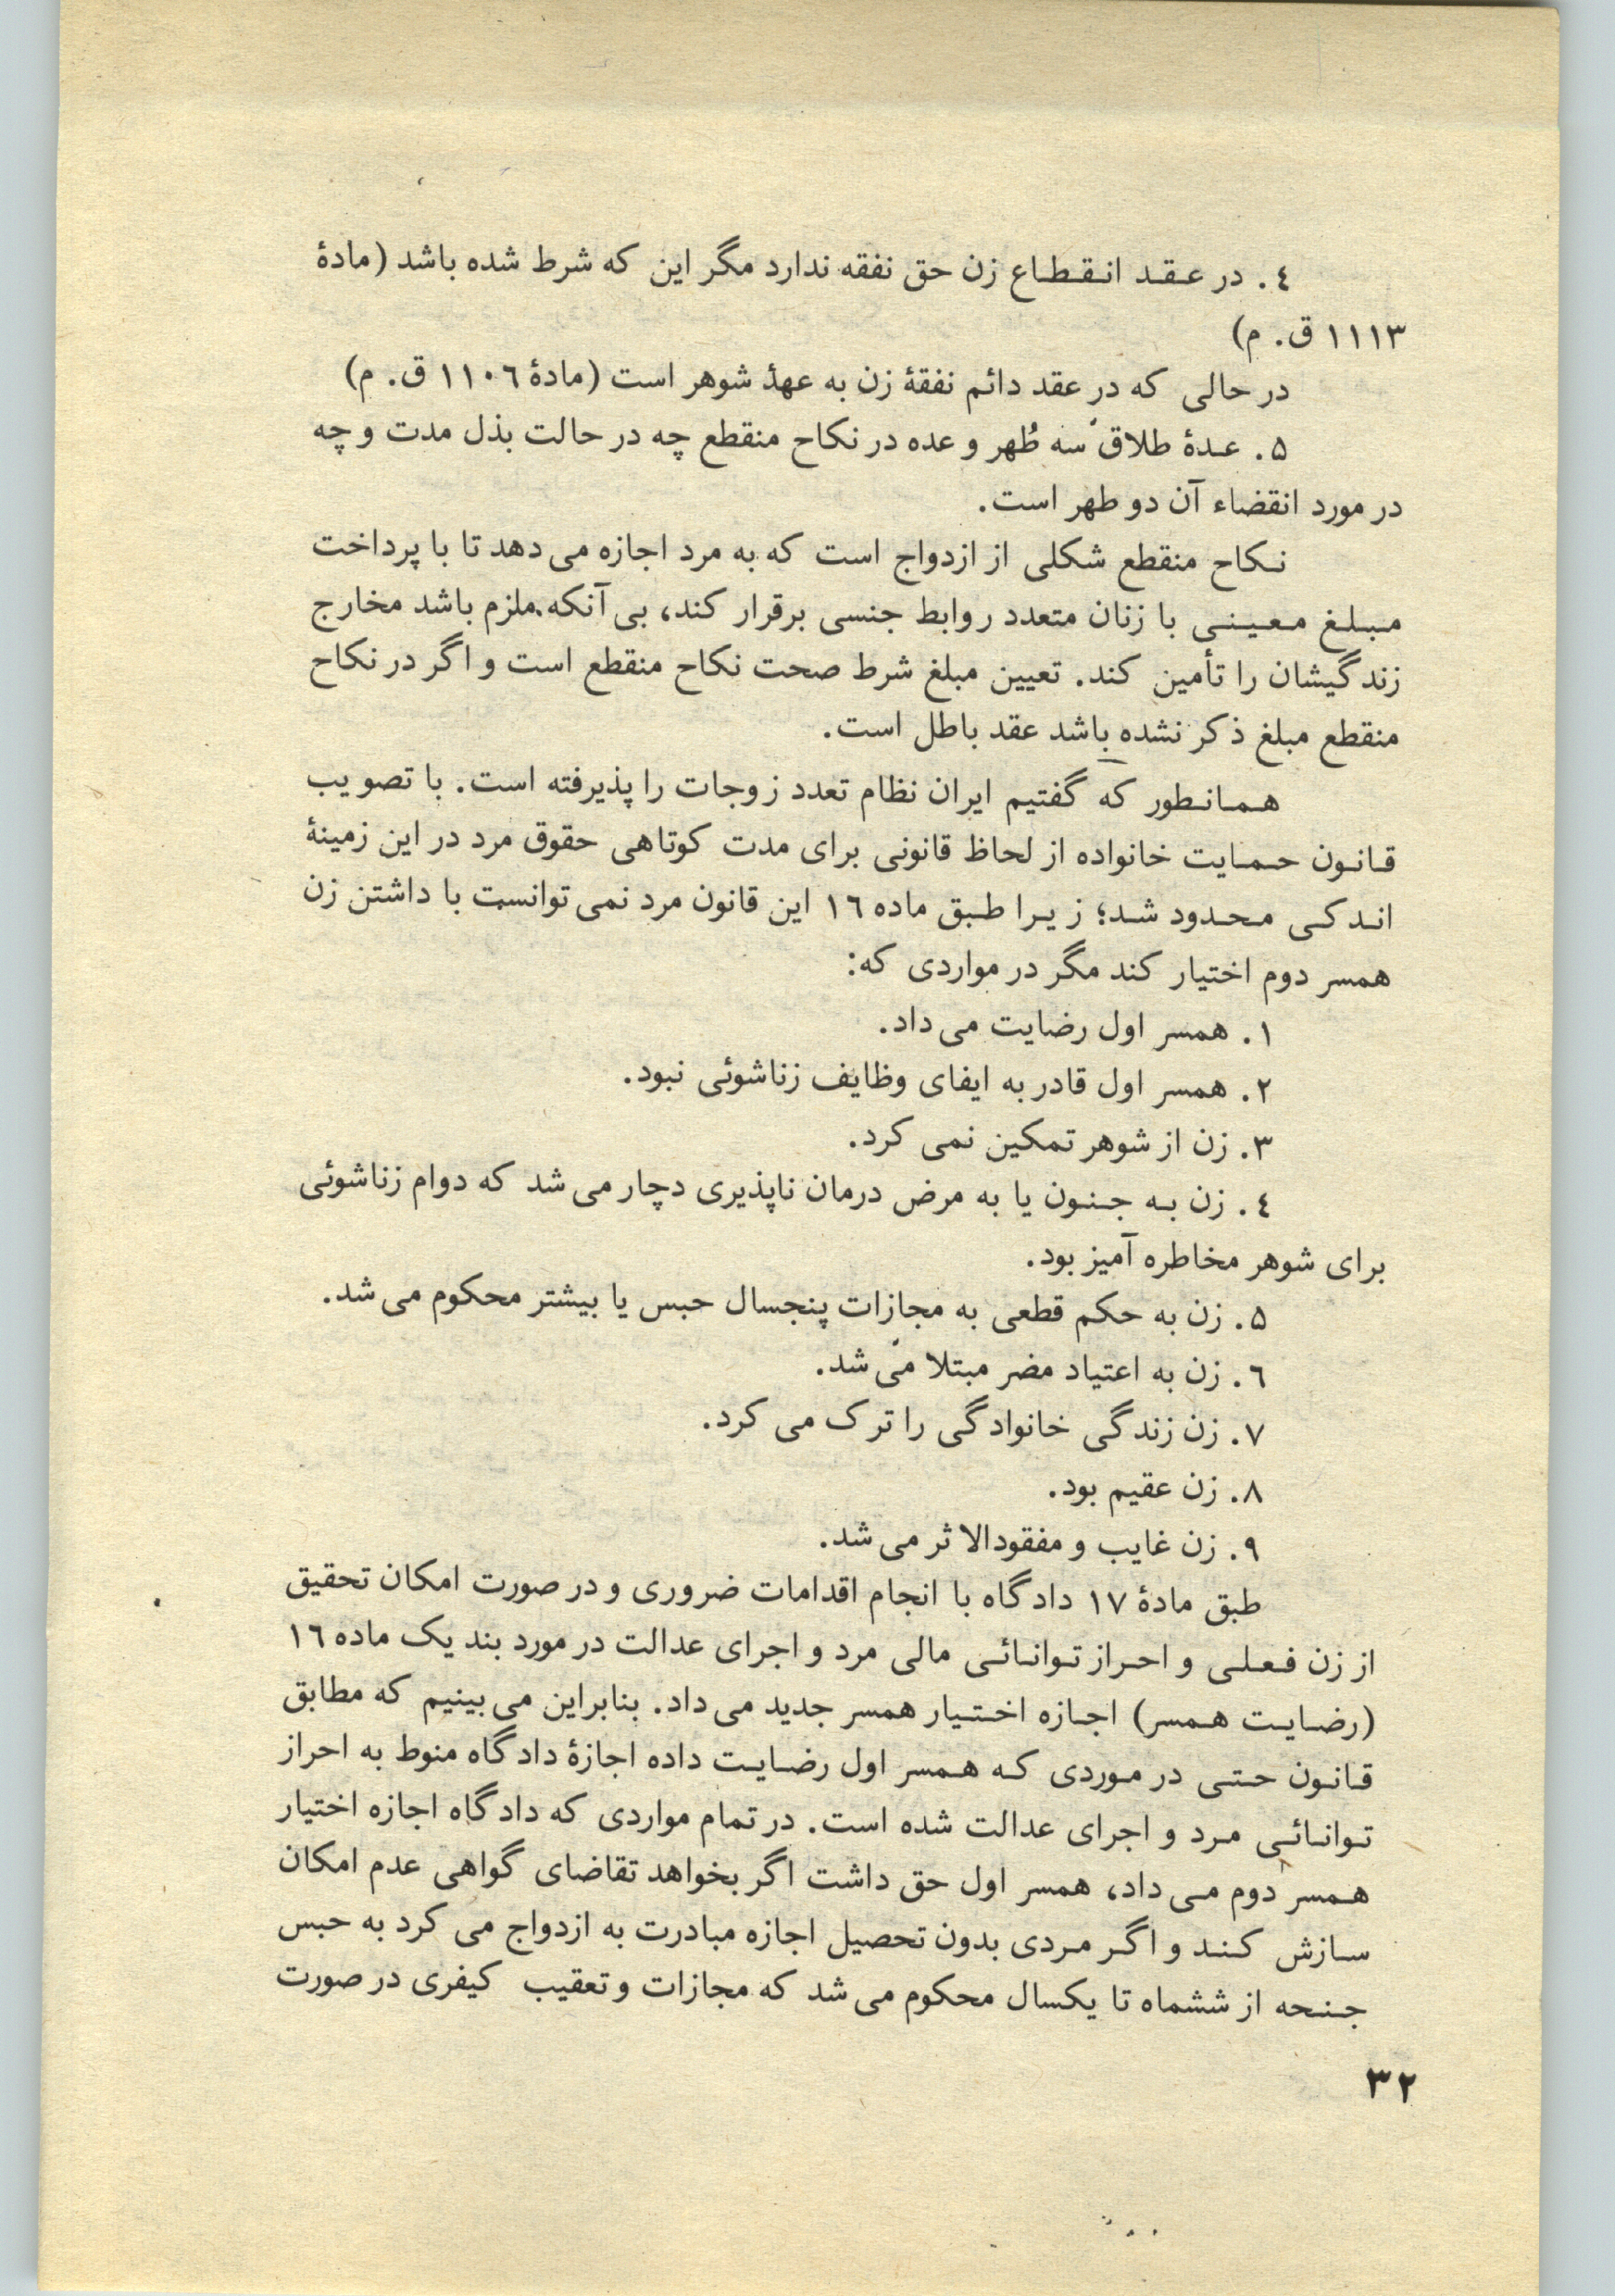 ۴. در عقد انقطاع زن حق نفقه ندارد مگر این که شرط شده باشد (مادهٔ
۱۱۱۳ ق. م)
در حالی که در عقد دائم نفقهٔ زن به عهدهٔ شوهر است (مادهٔ ۱۱۰۶ ق. م)
۵. عدهٔ طلاق سه طُهر و عده در نکاح منقطع چه در حالت بذل مدت و چه
در مورد انقضاء آن دو طهر است.
نکاح منقطع شکلی از ازدواج است که به مرد اجازه می دهد تا با پرداخت
مبلغ معینی با زنان متعدد روابط جنسی برقرار کند، بی آنکه ملزم باشد مخارج
زندگیشان را تأمین کند. تعیین مبلغ شرط صحت نکاح منقطع است و اگر در نکاح
منقطع مبلغ ذکر نشده باشد عقد باطل است.
همانطور که گفتیم ایران نظام تعدد زوجات را پذیرفته است. با تصویب
قانون حمایت خانواده از لحاظ قانونی برای مدت کوتاهی حقوق مرد در این زمینهٔ
اندکی محدود شد؛ زیرا طبق ماده ۱۶ این قانون مرد نمی توانست با داشتن زن
همسر دوم اختیار کند مگر در مواردی که:
۱. همسر اول رضایت می داد.
۲. همسر اول قادر به ایفای وظایف زناشوئی نبود.
۳. زن از شوهر تمکین نمی کرد.
۴. زن به جنون یا به مرض درمان ناپذیری دچار می شد که دوام زناشوئی
برای شوهر مخاطره آمیز بود.
۵. زن به حکم قطعی به مجازات پنجسال حبس یا بیشتر محکوم می شد.
۶. زن به اعتیاد مضر مبتلا می شد.
۷. زن زندگی خانوادگی را ترک می کرد.
۸. زن عقیم بود.
۹. زن غایب و مفقودالاثر می شد.
طبق مادهٔ ۱۷ دادگاه با انجام اقدامات ضروری و در صورت امکان تحقیق
از زن فعلی و احراز توانائی مالی مرد و اجرای عدالت در مورد بند یک ماده ۱۶
(رضایت همسر) اجازه اختیار همسر جدید می داد. بنابراین می بینیم که مطابق
قانون حتی در موردی که همسر اول رضایت داده اجازهٔ دادگاه منوط به احراز
توانائی مرد و اجرای عدالت شده است. در تمام مواردی که دادگاه اجازه اختیار
همسر دوم می داد، همسر اول حق داشت اگر بخواهد تقاضای گواهی عدم امکان
سازش کند و اگر مردی بدون تحصیل اجازه مبادرت به ازدواج می کرد به حبس
جنحه از ششماه تا یکسال محکوم می شد که مجازات و تعقیب کیفری در صورت
۳۲